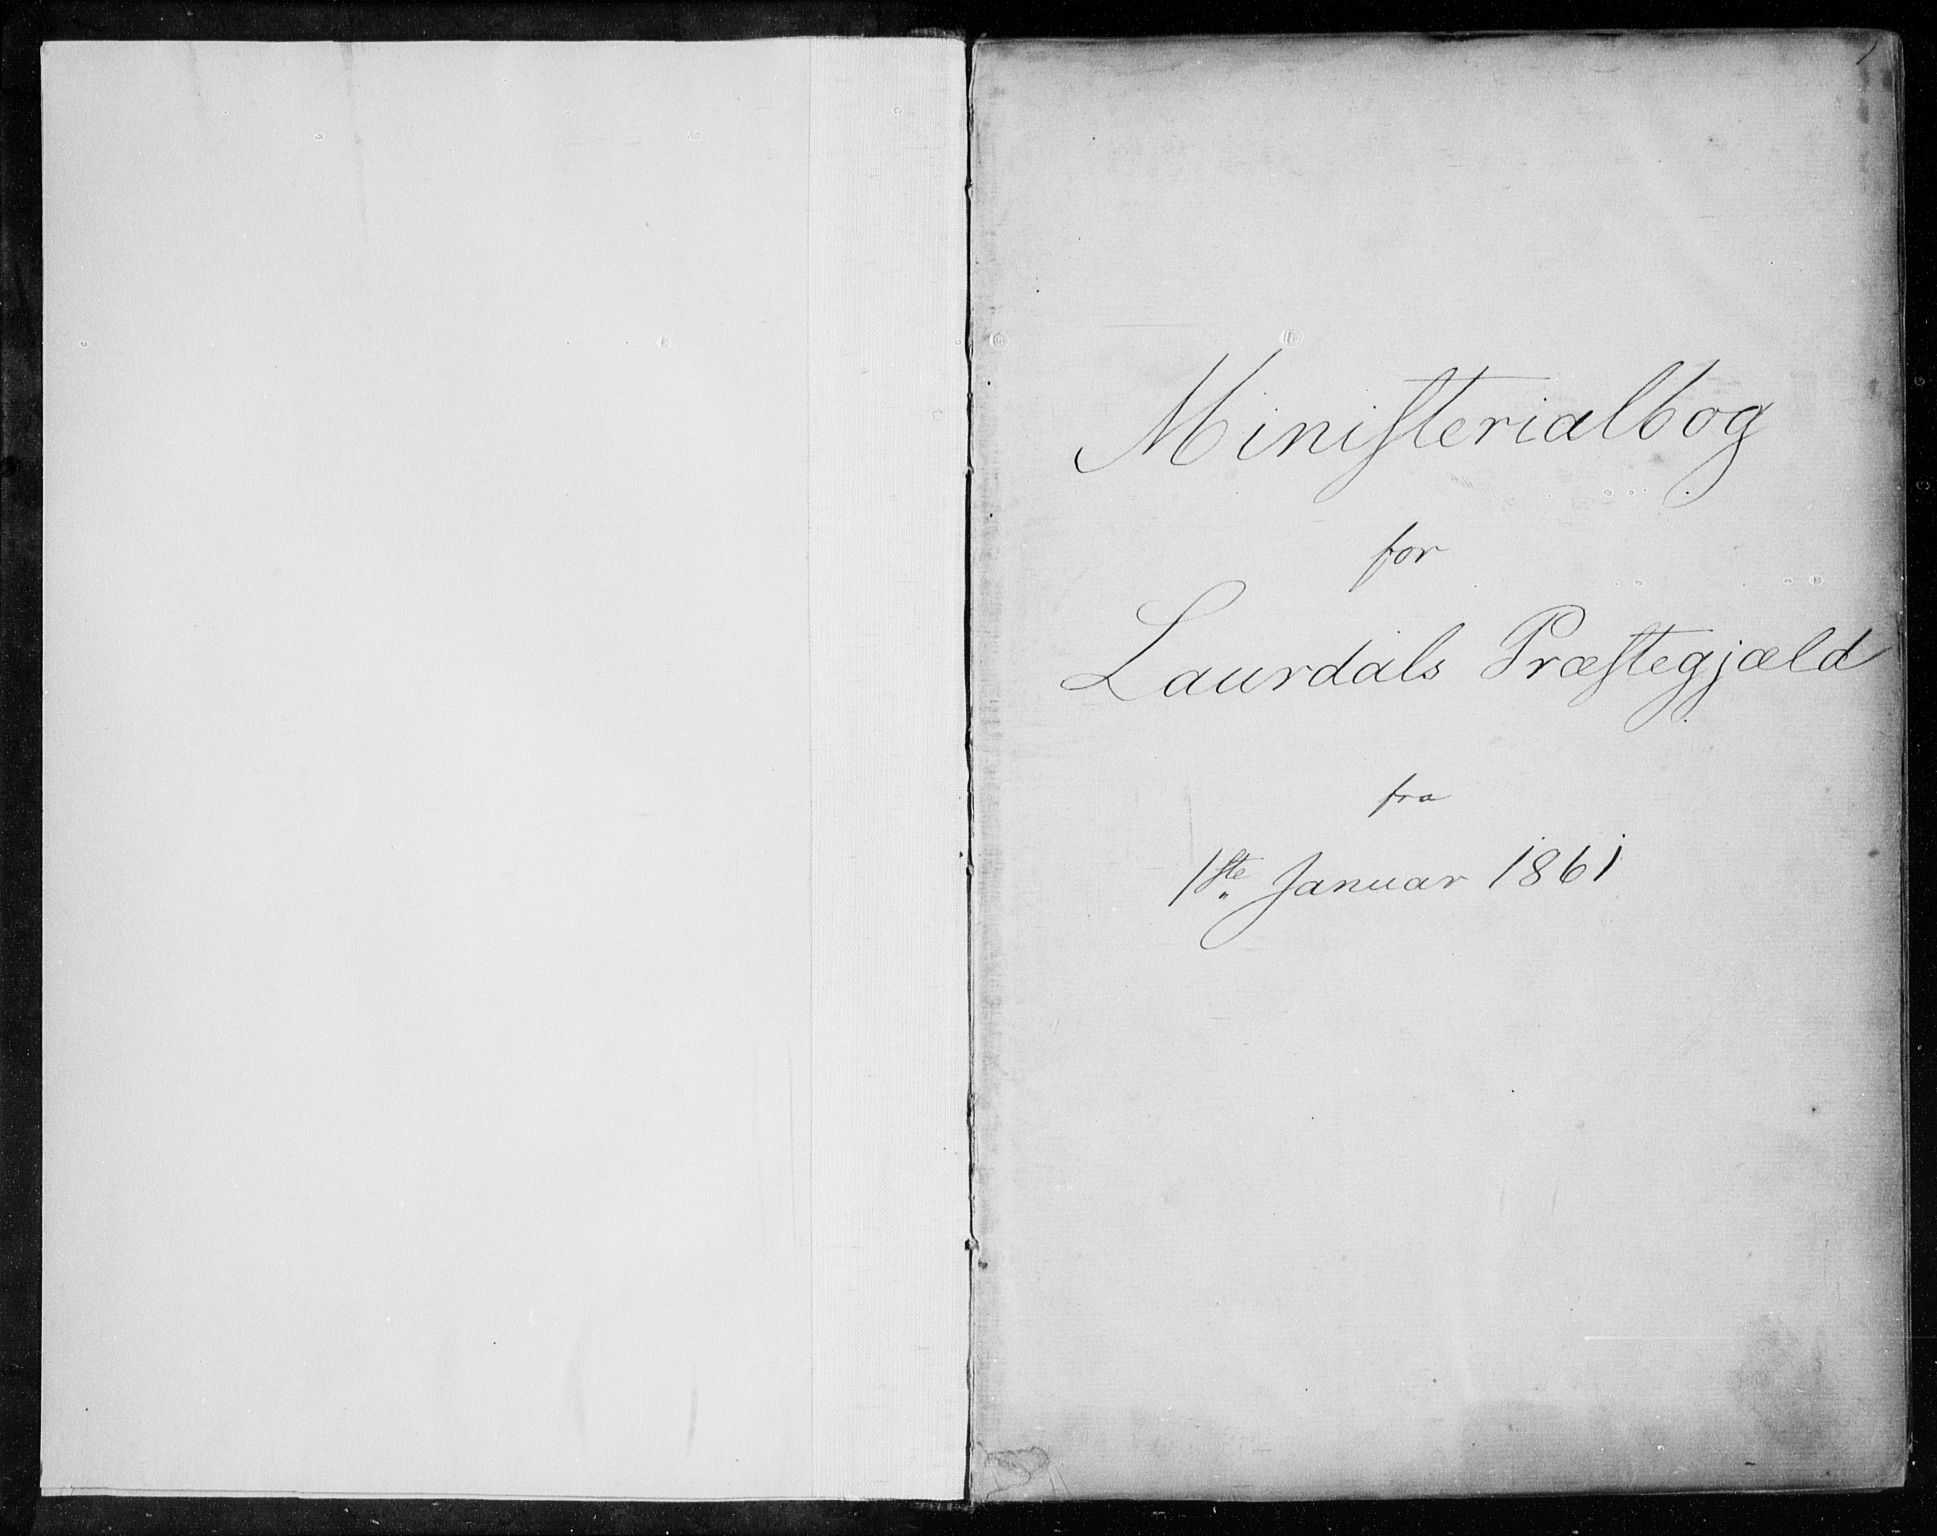 Ministerialbog
for
Laurdals Præstegjæld
fra
1ste Januar 1861